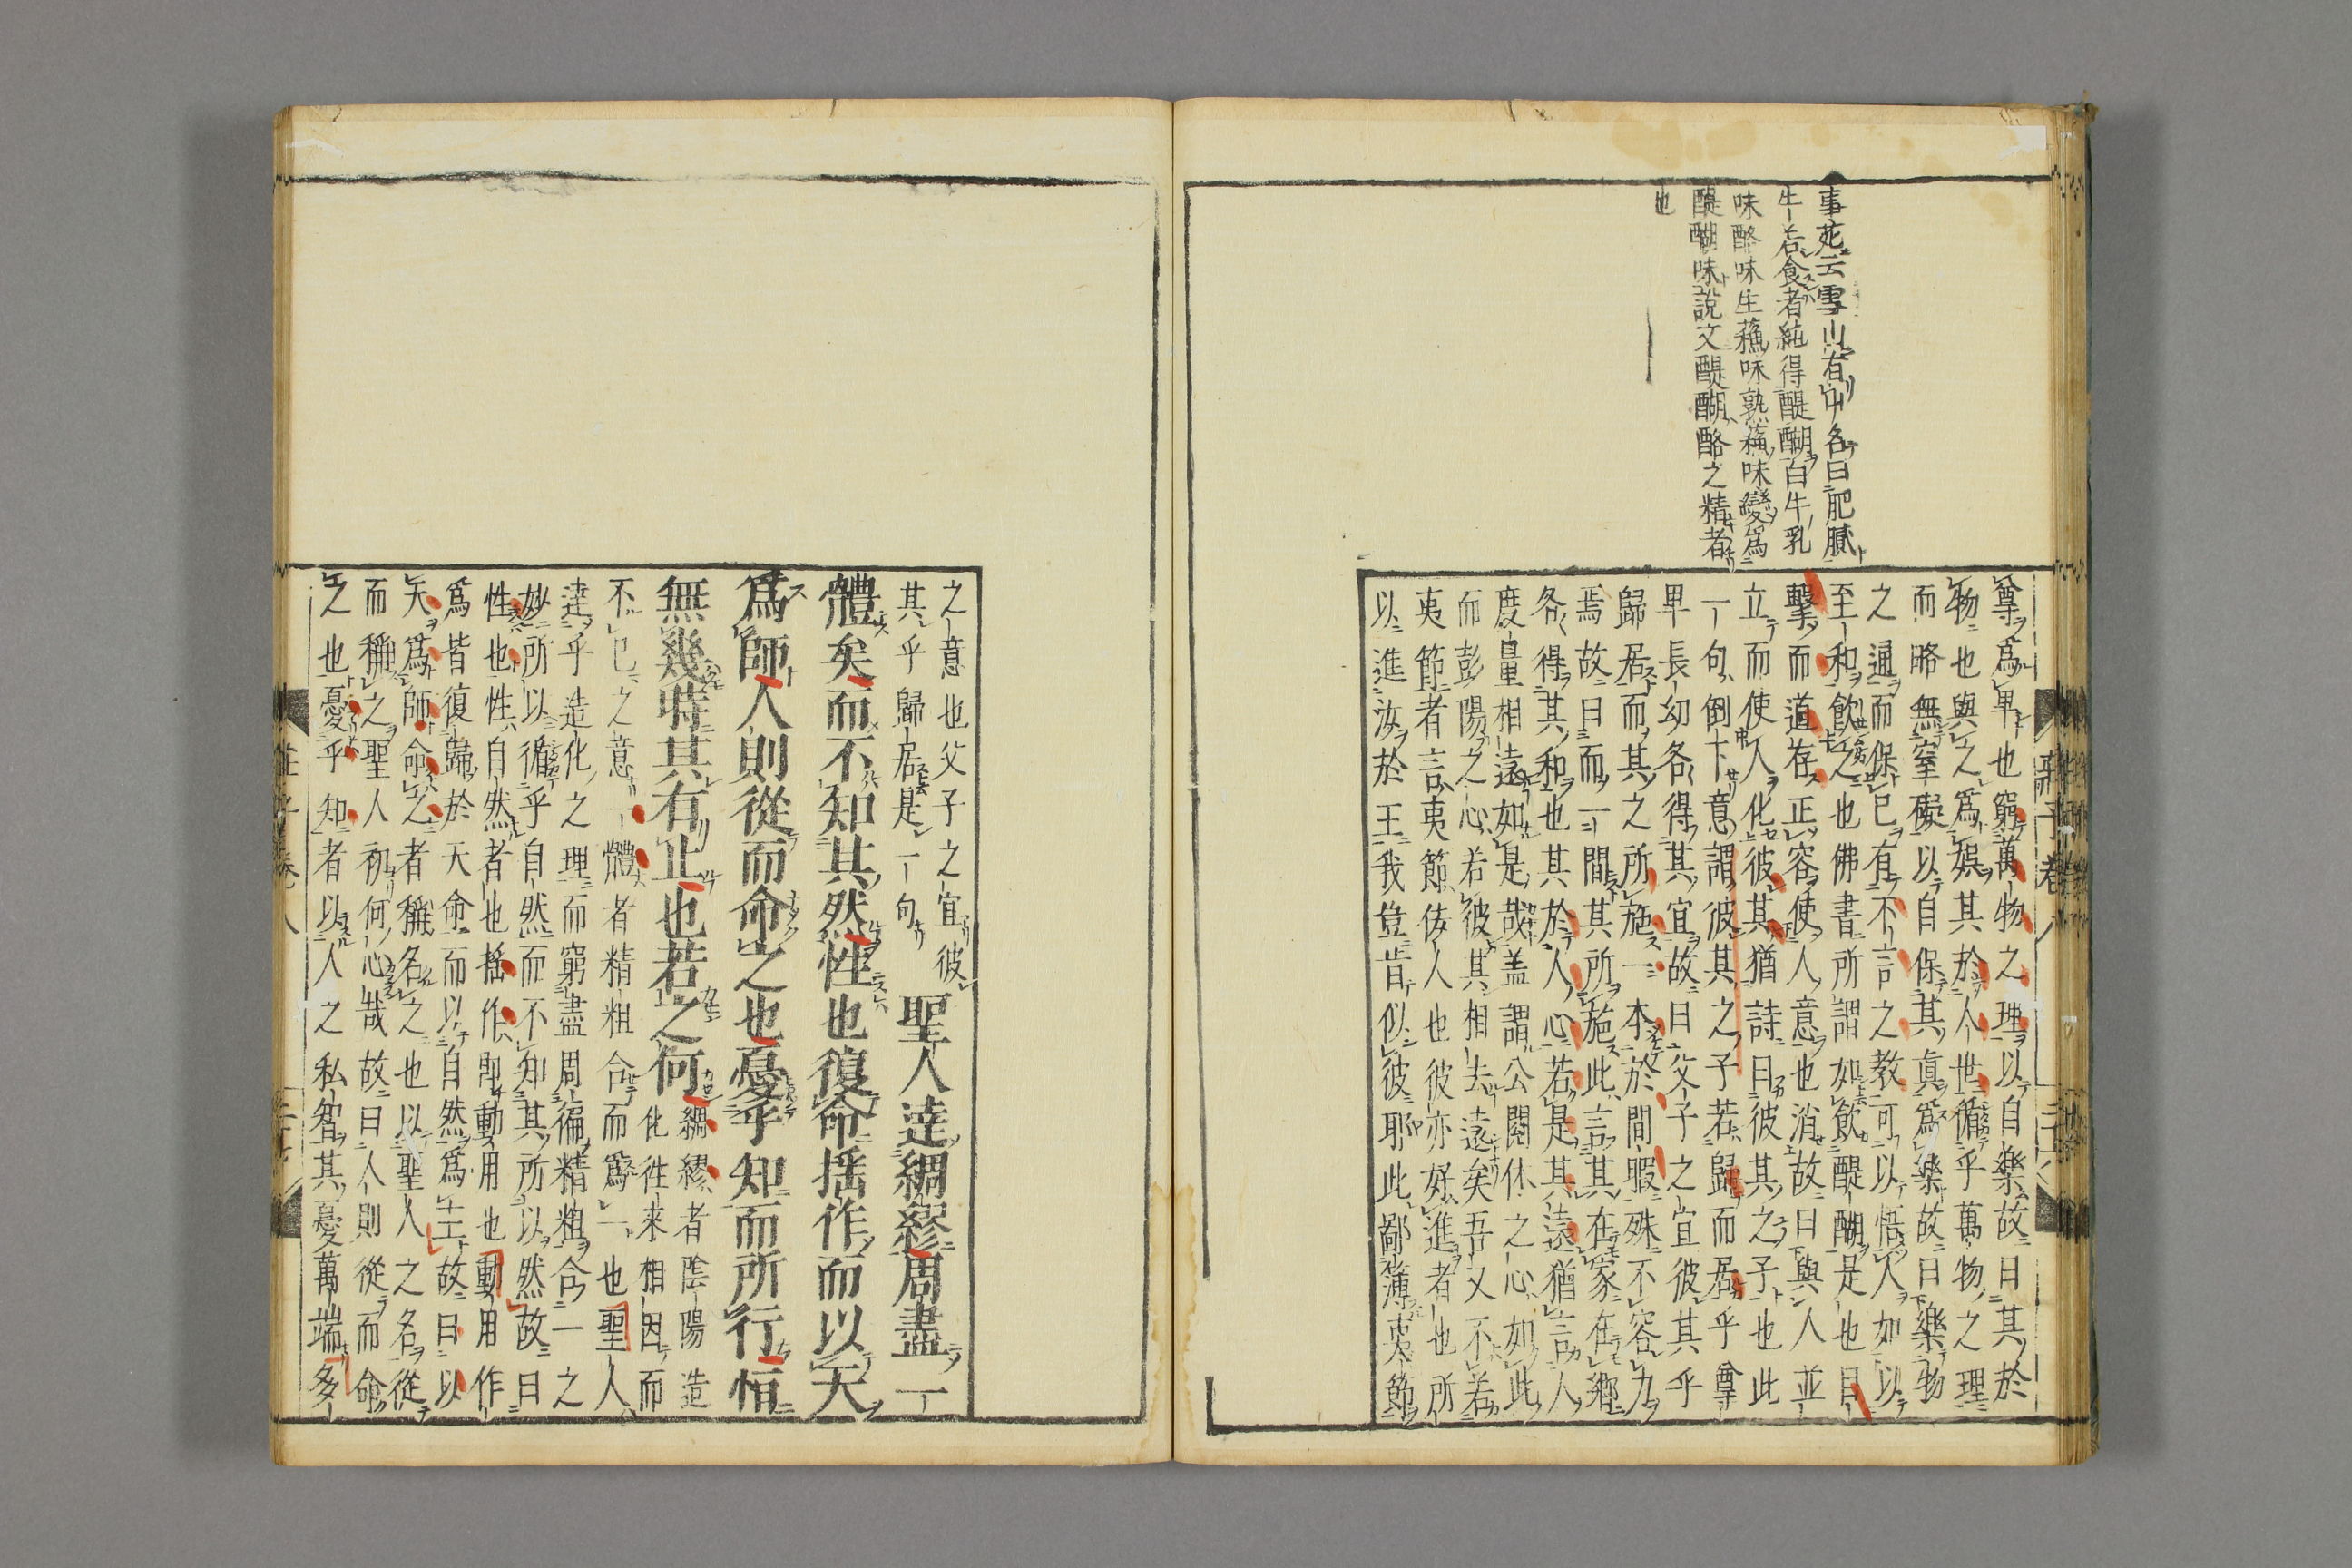 事苑云雪山有牛名曰肥膩
牛若食者純得醍醐白牛乳
味酪味生蘓味熟蘓味變爲
醍醐味說文醍醐酪之精者
也
尊爲卑也窮萬物之理以自樂故曰其於
物也與之爲娯其於人世循乎萬物之理
而略無窒礙以自保其真爲樂故曰樂物
之通而保已有不言之教可以悟人如以
至和飲之也佛書所謂如飲醍醐是也目
擊而道存正容使人意也消故曰與人並
立而使人化彼其猶詩曰彼其之子也此
一句倒下意謂彼其之子若歸而居乎尊
卑長幼各得其宜故曰父子之宜彼其乎
歸居而其之所施一本於間暇殊不容九
焉故曰而一間其所施此言其在家在鄉
各得其和也其於人心若是其遠猶言人
度量相遠如是哉盖謂公閱休之心如此
而彭陽之心若彼其相去遠矣吾又不若
夷節者言夷節佞人也彼亦好進者也所
以進汝於王我豈肯似彼耶此鄙薄夷節
之意也父子之宜彼
其乎歸居是一句
聖人達綢繆周盡一
體矣而不知其然性也復命揺作而以天
爲師人則從而命之也憂乎知而所行恒
無幾時其有止也若之何
綢繆者陰陽造
化徃来相因而
不已之意一體者精粗合而爲一也聖人
達乎造化之理而窮盡周徧精粗合一之
妙所以循乎自然而不知其所以然故曰
性也性自然者也揺作即動用也動用作
爲皆復歸於天命而以自然爲主故曰以
天爲師命之者稱名之也以聖人之名從
而稱之聖人初何心哉故曰人則從而命
之也憂乎知者以人之私智其憂萬端多
莊子卷八